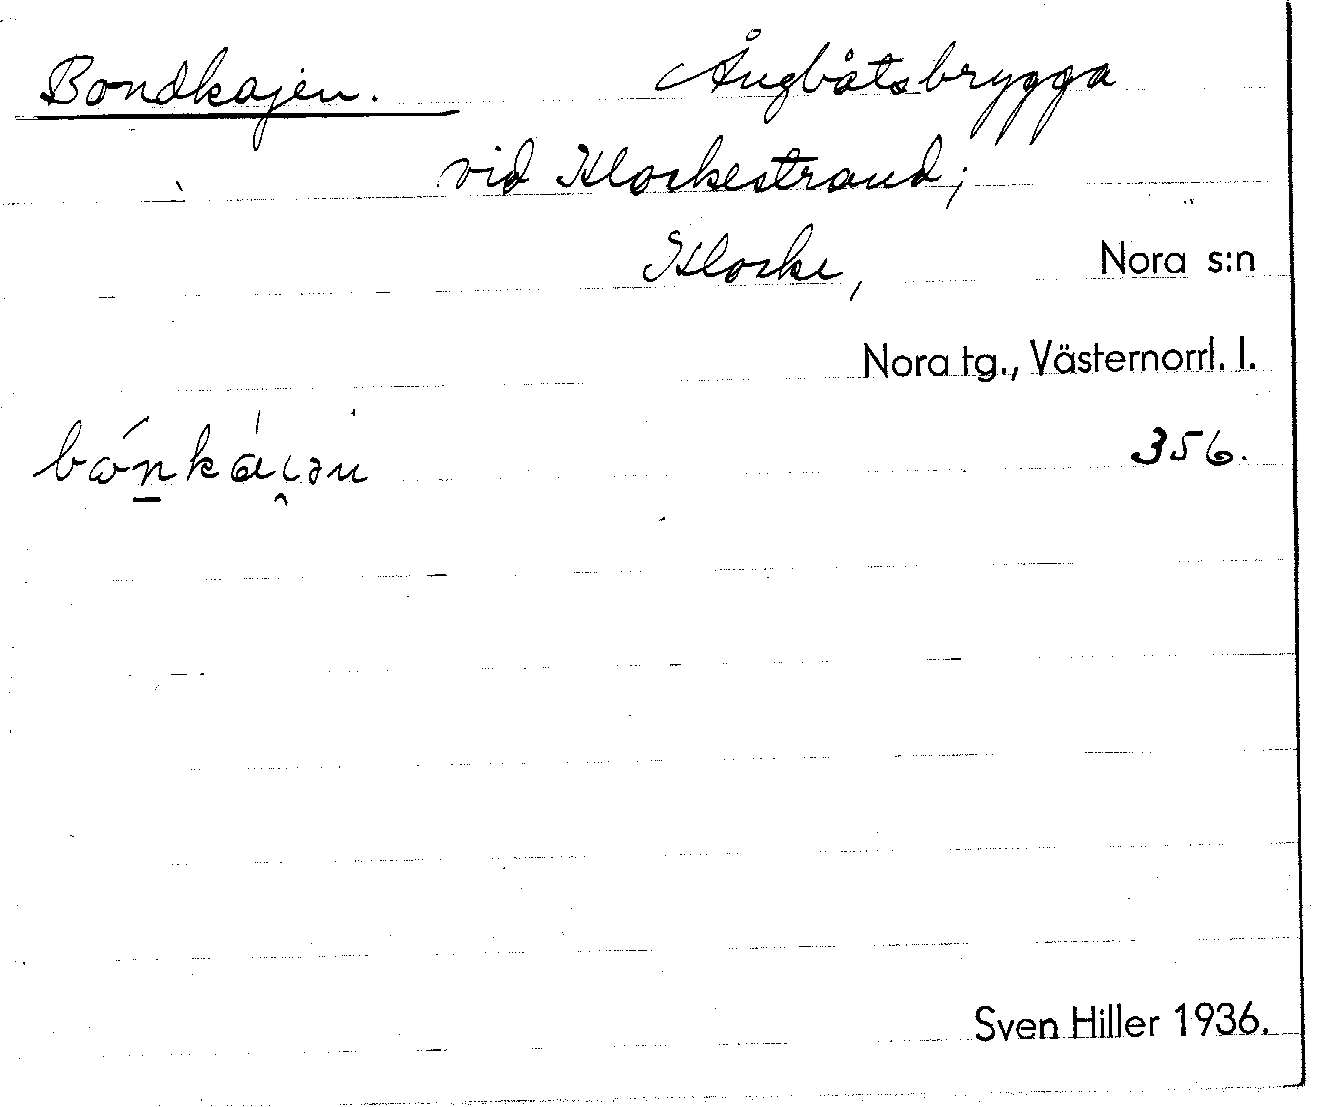 Bondkajen. Ångbåtsbrygga
vid Klockestrand;
Klocke, Nora s:n
Nora tg., Västernorrl. l.
356.
Sven Hiller 1936.